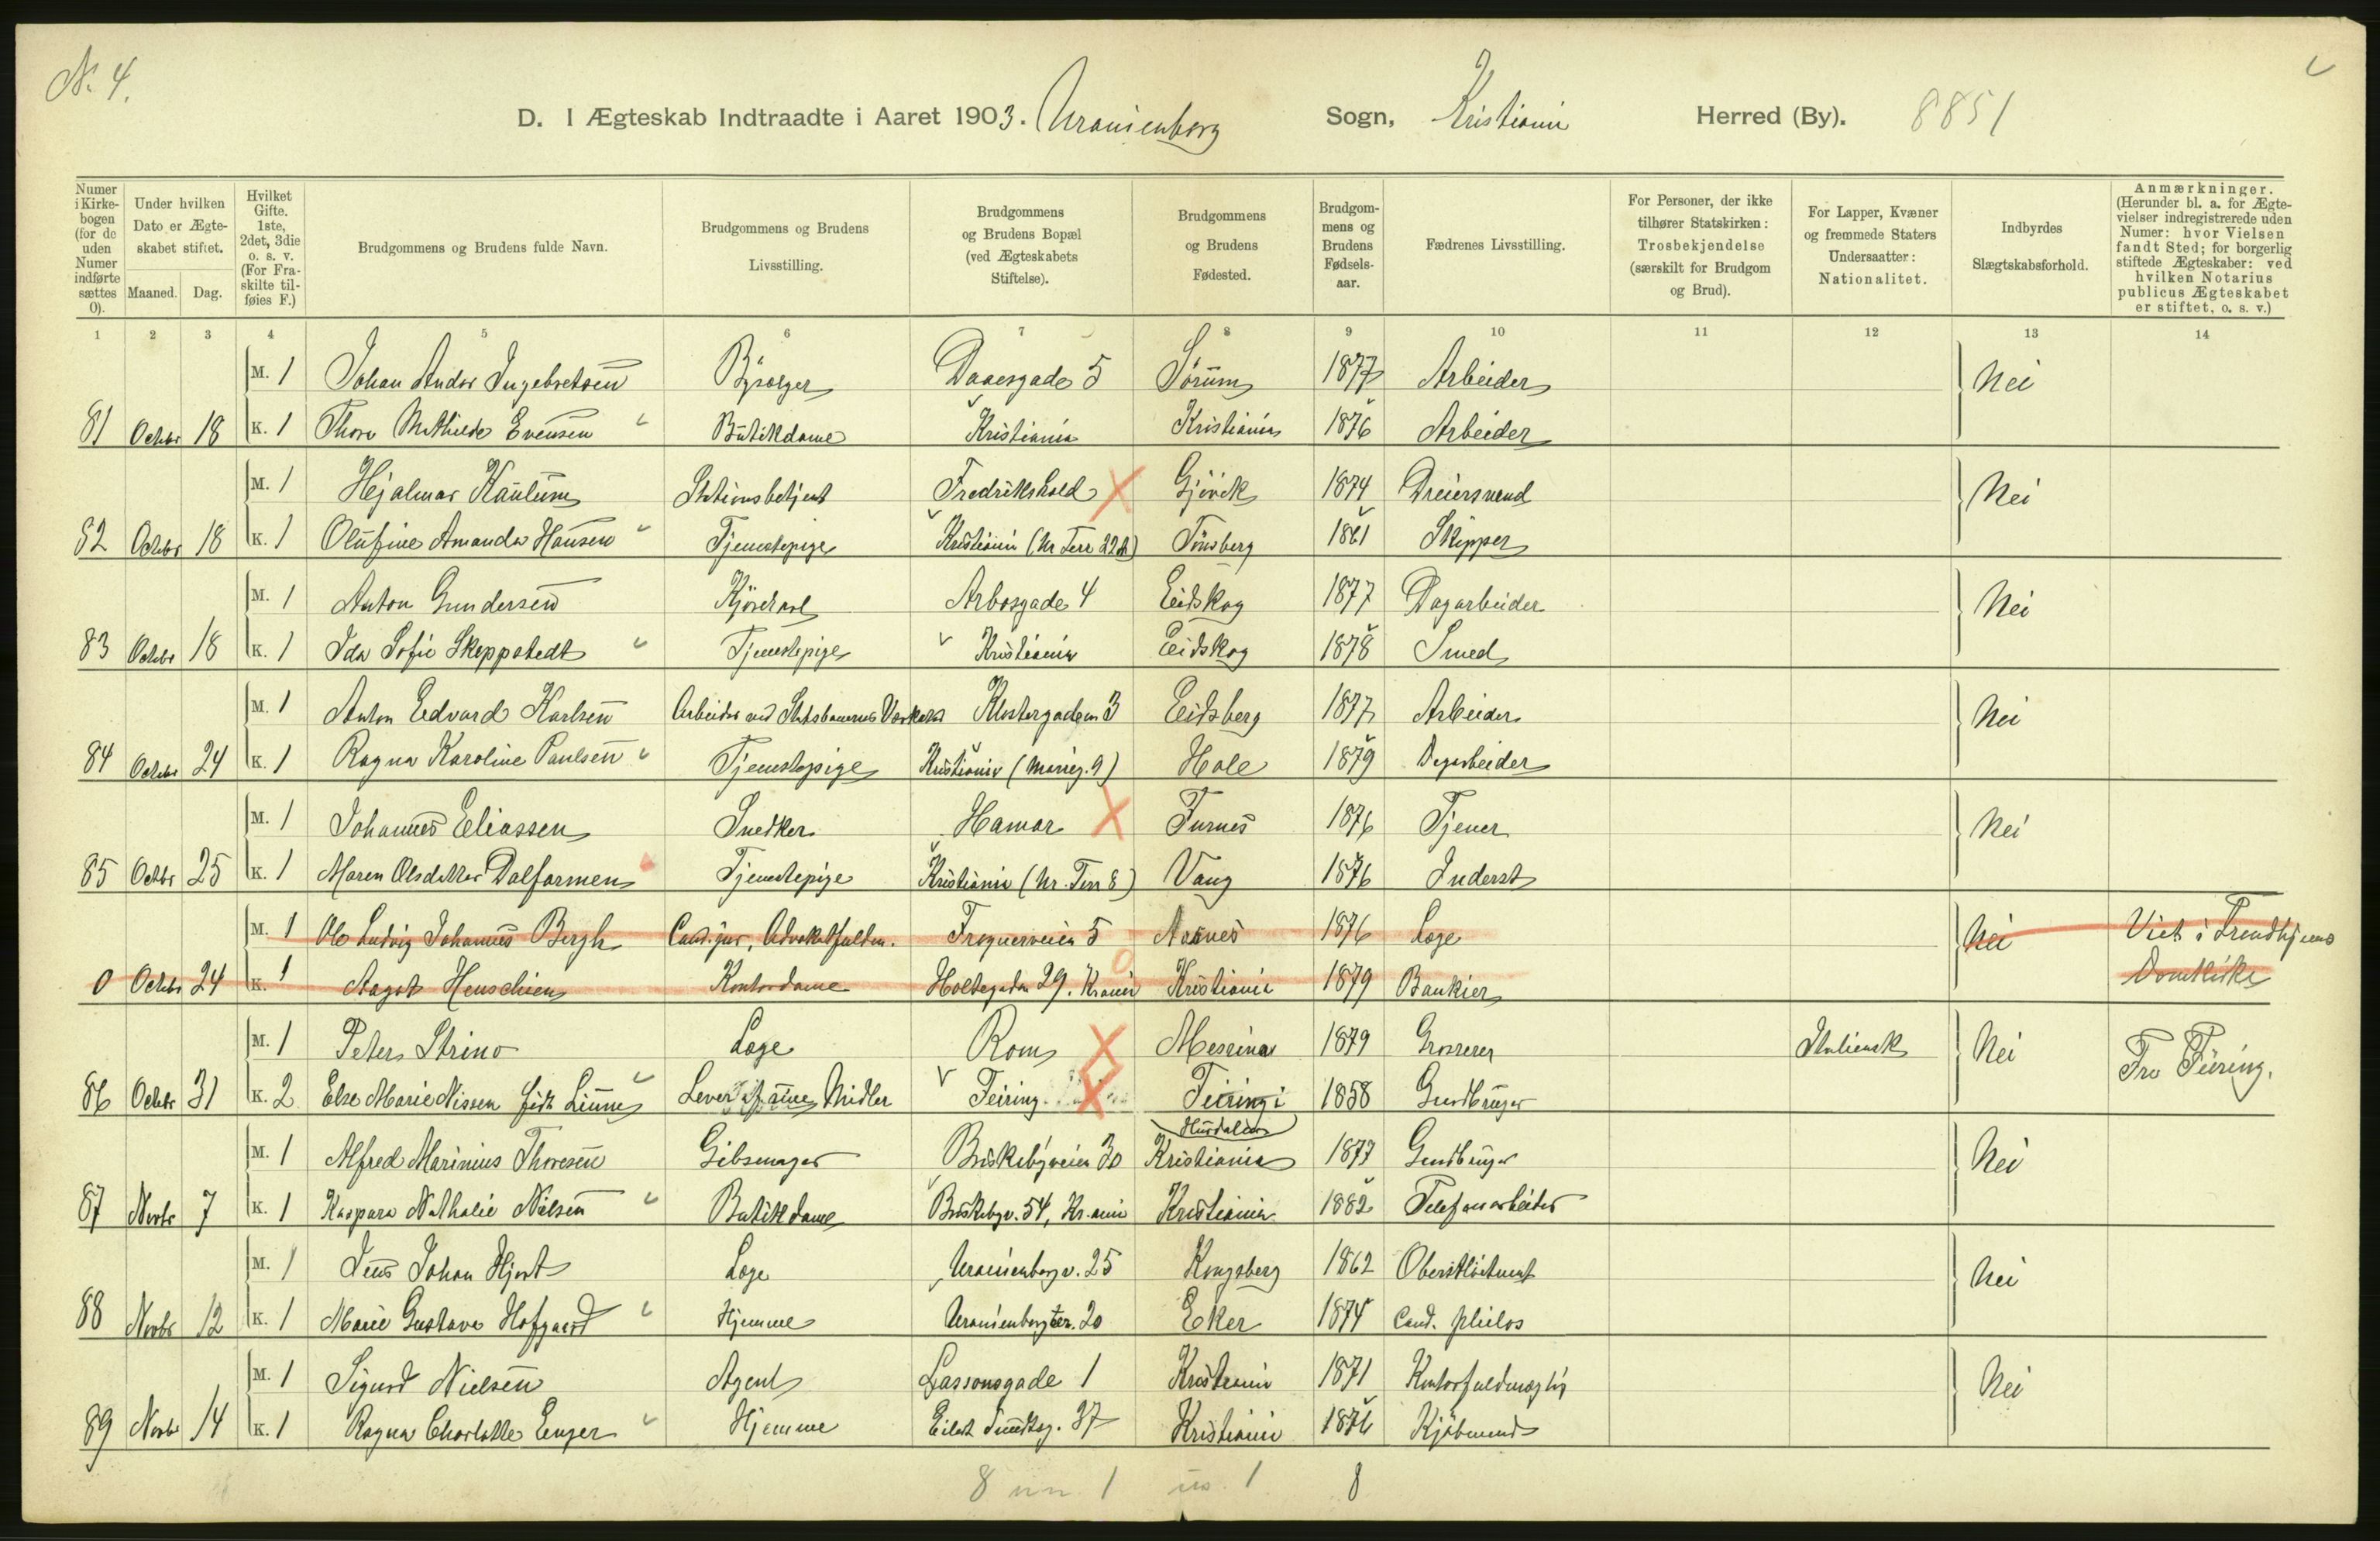 N. 4.
D. I Ægteskab Indtraadte i Aaret 1903. Uranienborg Sogn, Kristiania Herred (By). 8851
Numer i Kirkebogen (for de uden Numer indførte sættes 0).
Under hvilken Dato er Ægteskabet stiftet.
Maaned. Dag.
Hvilket Gifte. 1ste, 2det, 3die o. s. v. (For Fraskilte tilføies F.)
Brudgommens og Brudens fulde Navn.
Brudgommens og Brudens Livsstilling.
Brudgommens og Brudens Bopæl (ved Ægteskabets Stiftelse).
Brudgommens og Brudens Fødested.
Brudgommens og Brudens Fødselsaar.
Fædrenes Livsstilling.
For Personer, der ikke tilhører Statskirken: Trosbekjendelse (særskilt for Brudgom og Brud).
For Lapper, Kvæner og fremmede Staters Undersaatter: Nationalitet.
Indbyrdes Slægtskabsforhold.
Anmærkninger. (Herunder bl. a. for Ægtevielser indregistrerede uden Numer: hvor Vielsen fandt Sted; for borgerlig stiftede Ægteskaber: ved hvilken Notarius publicus Ægteskabet er stiftet, o. s. v.)
1 2 3 4 5 6 7 8 9 10 11 12 13 14
M. 1 Johan Andor Ingebretsen Daaesgade 5 Sørum 1877 Arbeider Nei
81 Octbr 18 K. 1 Thora Mathilde Evensen Butikdame Kristiania Kristiania 1876 Arbeider
M. 1 Hjalmar Kaulum Stationsbetjent Fredrikshald Gjøvik 1874 Dreiersvend Nei
82 Octbr 18 K. 1 Olufine Amanda Hansen Tjenestepige Kristiania (Ur Terr 22) Tønsberg 1861 Skipper
M. 1 Anton Gundersen Kjørekarl Arbosgade 4 Eidskog 1877 Dagarbeider Nei
83 Octbr 18 K. 1 Ida Sofie Skeppstedt Tjenestepige Kristiania Eidskog 1878 Smed
M. 1 Anton Edvard Karlsen Arbeider ved Statsbanernes Klostergaden 3 Eidsberg 1877 Arbeider Nei
84 Octbr 24 K. 1 Ragna Karoline Paulsen Tjenestepige Kristiania Hole 1879 Dagarbeider
M. 1 Johannes Eliassen Snedker Hamar Furnes 1876 Tjener Nei
85 Octbr 25 K. 1 Maren Olsdatter Dalfarmen Tjenestepige Kristiania (Ur. Terr 8) Vang 1876 Inderst
M. 1 Ole Ludvig Johannes Bergh Cand. jur, Advokatfuldm. Frognerveien 5 1876 Læge Nei Viet i Trondhjems
0 Octbr 24 K. 1 Aagot Henschien Kontordame Holtegaden 29. Krania Kristiania 1879 Bankier Domkirke
M. 1 Peter Strino Læge Rom Messina 1879 Grosserer Italiensk Nei
86 Octbr 31 K. 2 Else Marie Nissen født Linne Lever af sine Midler Feiring Feiring i 1858 Gaardbruger Fra Feiring.
Hurdalen
M. 1 Alfred Marinius Thoresen Gibsmager Briskebyveien 30 Kristiania 1877 Gaardbruger Nei
87 Novbr 7 K. 1 Kaspara Nathalie Nielsen Butikdame Briskebyv. 54, Kr.ania Kristiania 1882 Telefonarbeider
M. 1 Jens Johan Hjort Læge Uranienborgv. 25 Kongsberg 1862 Oberstløitnant Nei
88 Novbr 12 K. 1 Marie Gustava Hofgaard Hjemme Uranienborgter. 20 Eker 1874 Cand. philos
M. 1 Sigurd Nielsen Agent Lassonsgade 1 Kristiania 1871 Kontorfuldmægtig Nei
89 Novbr 14 K. 1 Ragna Charlotte Enger Hjemme Eilert Sundtsg. 37 Kristiania 1876 Kjøbmand
8 1 1 8